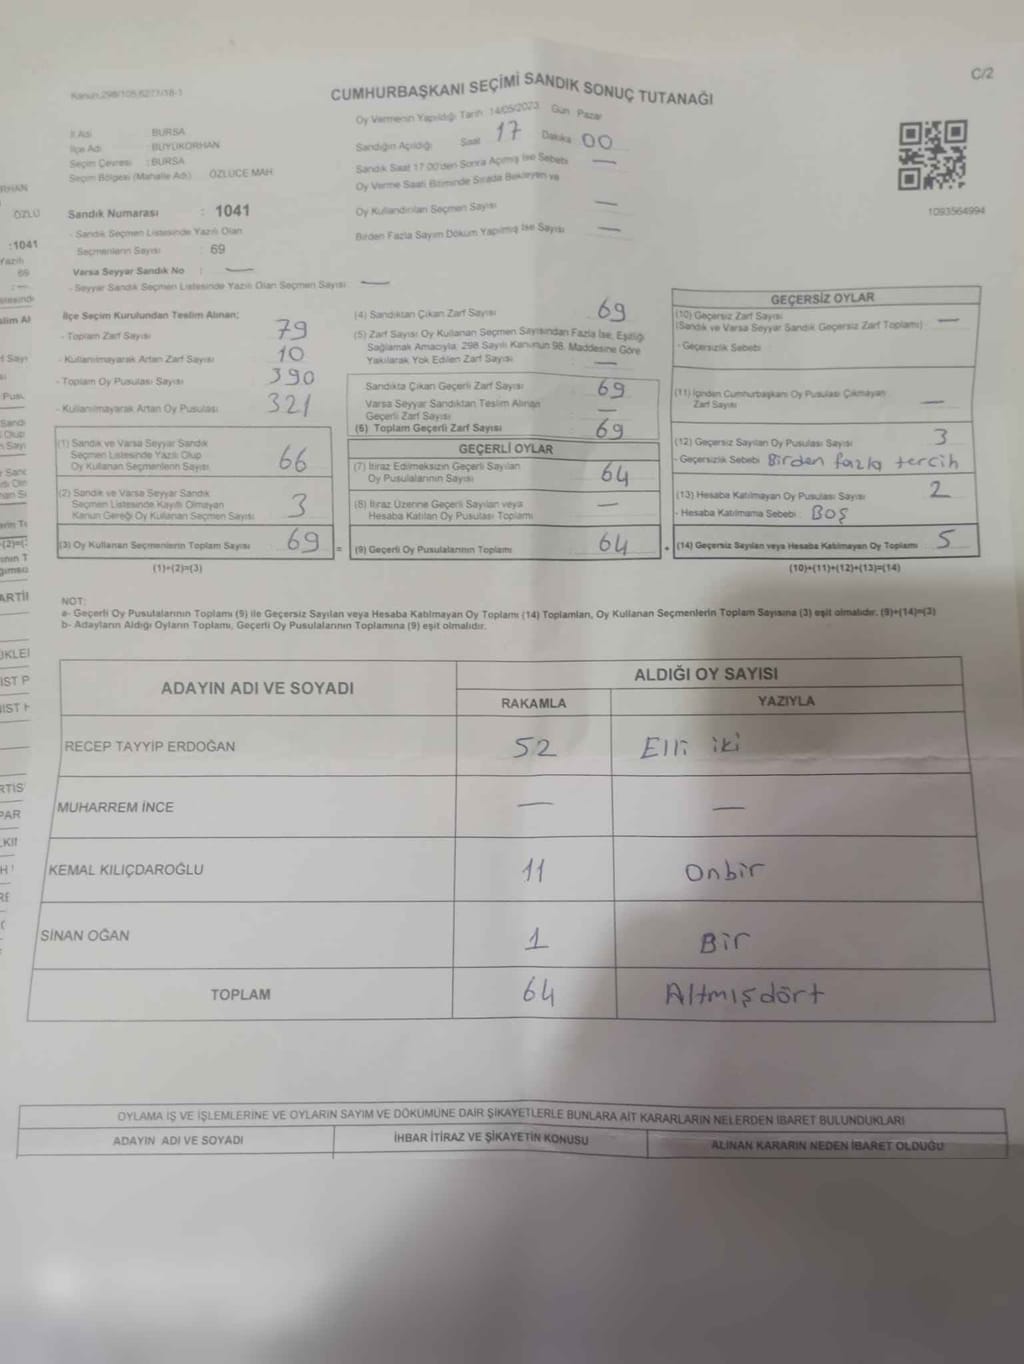 C/2
Kanun.298/105,6271/18-1
CUMHURBAŞKANI SEÇİMİ SANDIK SONUÇ TUTANAĞI
İl Adı : BURSA
İlçe Adı : BÜYÜKORHAN
Seçim Çevresi : BURSA
Seçim Bölgesi (Mahalle Adı) ÖZLÜCE MAH.
Oy Vermenin Yapıldığı Tarih 14/05/2023 Gün Pazar
Sandığın Açıldığı Saat 17 Dakika 00
Sandık Saat 17.00'den Sonra Açılmış İse Sebebi —
Oy Verme Saati Bitiminde Sırada Bekleyen ve
Oy Kullandırılan Seçmen Sayısı —
Birden Fazla Sayım Döküm Yapılmış İse Sayısı —
1093564994
Sandık Numarası : 1041
- Sandık Seçmen Listesinde Yazılı Olan
Seçmenlerin Sayısı : 69
Varsa Seyyar Sandık No : —
- Seyyar Sandık Seçmen Listesinde Yazılı Olan Seçmen Sayısı —
İlçe Seçim Kurulundan Teslim Alınan;
- Toplam Zarf Sayısı 79
- Kullanılmayarak Artan Zarf Sayısı 10
- Toplam Oy Pusulası Sayısı 390
- Kullanılmayarak Artan Oy Pusulası 321
(1) Sandık ve Varsa Seyyar Sandık
Seçmen Listesinde Yazılı Olup
Oy Kullanan Seçmenlerin Sayısı 66
(2) Sandık ve Varsa Seyyar Sandık
Seçmen Listesinde Kayıtlı Olmayan
Kanun Gereği Oy Kullanan Seçmen Sayısı 3
(3) Oy Kullanan Seçmenlerin Toplam Sayısı 69 =
(1)+(2)=(3)
(4) Sandıktan Çıkan Zarf Sayısı 69
(5) Zarf Sayısı Oy Kullanan Seçmen Sayısından Fazla İse, Eşitliği
Sağlamak Amacıyla, 298 Sayılı Kanunun 98. Maddesine Göre
Yakılarak Yok Edilen Zarf Sayısı —
Sandıkta Çıkan Geçerli Zarf Sayısı 69
Varsa Seyyar Sandıktan Teslim Alınan
Geçerli Zarf Sayısı —
(6) Toplam Geçerli Zarf Sayısı 69
GEÇERLİ OYLAR
(7) İtiraz Edilmeksizin Geçerli Sayılan
Oy Pusulalarının Sayısı 64
(8) İtiraz Üzerine Geçerli Sayılan veya
Hesaba Katılan Oy Pusulası Toplamı —
(9) Geçerli Oy Pusulalarının Toplamı 64 +
GEÇERSİZ OYLAR
(10) Geçersiz Zarf Sayısı
(Sandık ve Varsa Seyyar Sandık Geçersiz Zarf Toplamı) —
- Geçersizlik Sebebi
(11) İçinden Cumhurbaşkanı Oy Pusulası Çıkmayan
Zarf Sayısı —
(12) Geçersiz Sayılan Oy Pusulası Sayısı 3
- Geçersizlik Sebebi Birden fazla tercih
(13) Hesaba Katılmayan Oy Pusulası Sayısı 2
- Hesaba Katılmama Sebebi : Boş
(14) Geçersiz Sayılan veya Hesaba Katılmayan Oy Toplamı 5
(10)+(11)+(12)+(13)=(14)
NOT:
a- Geçerli Oy Pusulalarının Toplamı (9) ile Geçersiz Sayılan veya Hesaba Katılmayan Oy Toplamı (14) Toplamları, Oy Kullanan Seçmenlerin Toplam Sayısına (3) eşit olmalıdır. (9)+(14)=(3)
b- Adayların Aldığı Oyların Toplamı, Geçerli Oy Pusulalarının Toplamına (9) eşit olmalıdır.
ADAYIN ADI VE SOYADI
ALDIĞI OY SAYISI
RAKAMLA YAZIYLA
RECEP TAYYİP ERDOĞAN 52 Elli iki
MUHARREM İNCE — —
KEMAL KILIÇDAROĞLU 11 Onbir
SİNAN OĞAN 1 Bir
TOPLAM 64 Altmışdört
OYLAMA İŞ VE İŞLEMLERİNE VE OYLARIN SAYIM VE DÖKÜMÜNE DAİR ŞİKAYETLERLE BUNLARA AİT KARARLARIN NELERDEN İBARET BULUNDUKLARI
ADAYIN ADI VE SOYADI İHBAR İTİRAZ VE ŞİKAYETİN KONUSU ALINAN KARARIN NEDEN İBARET OLDUĞU